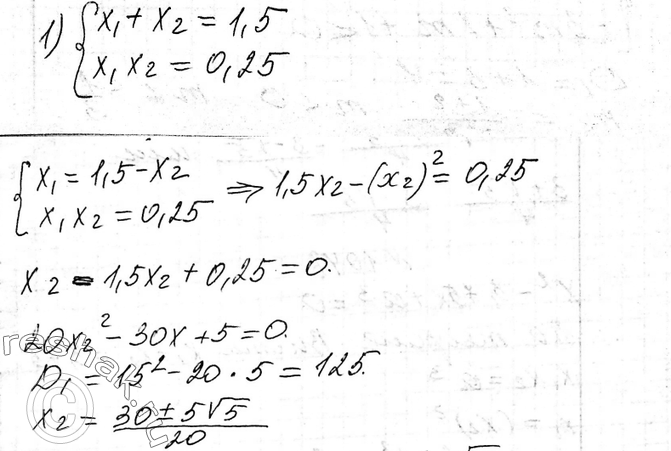 1) { x₁ + x₂ = 1,5
x₁ x₂ = 0,25
{ x₁ = 1,5 - x₂
x₁ x₂ = 0,25 ⇒ 1,5x₂ - (x₂)² = 0,25
x₂ - 1,5x₂ + 0,25 = 0.
20x₂² - 30x + 5 = 0.
D₁ = 15² - 20 · 5 = 125.
x₂ = (30 ± 5√5)/20
reshak.ru